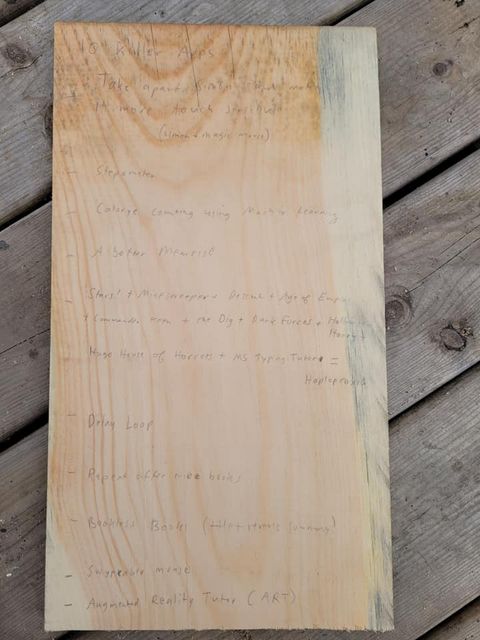 10 Killer Apps
- Take apart and make
it more touch sensitive
(Simon + magic mouse)
- Stepometer
- Calorie counting using Machine Learning
- A Better Memrise
- Stars! + Minesweeper + Descent + Age of Empires
+ Commander Keen + The Dig + Dark Forces +
Hugo House of Horrors + MS Typing Tutor =
- Delay Loop
- Repeat after mee books
- Bookless Books (tilt reveals summary)
- Swipeable mouse
- Augmented Reality Tutor (ART)